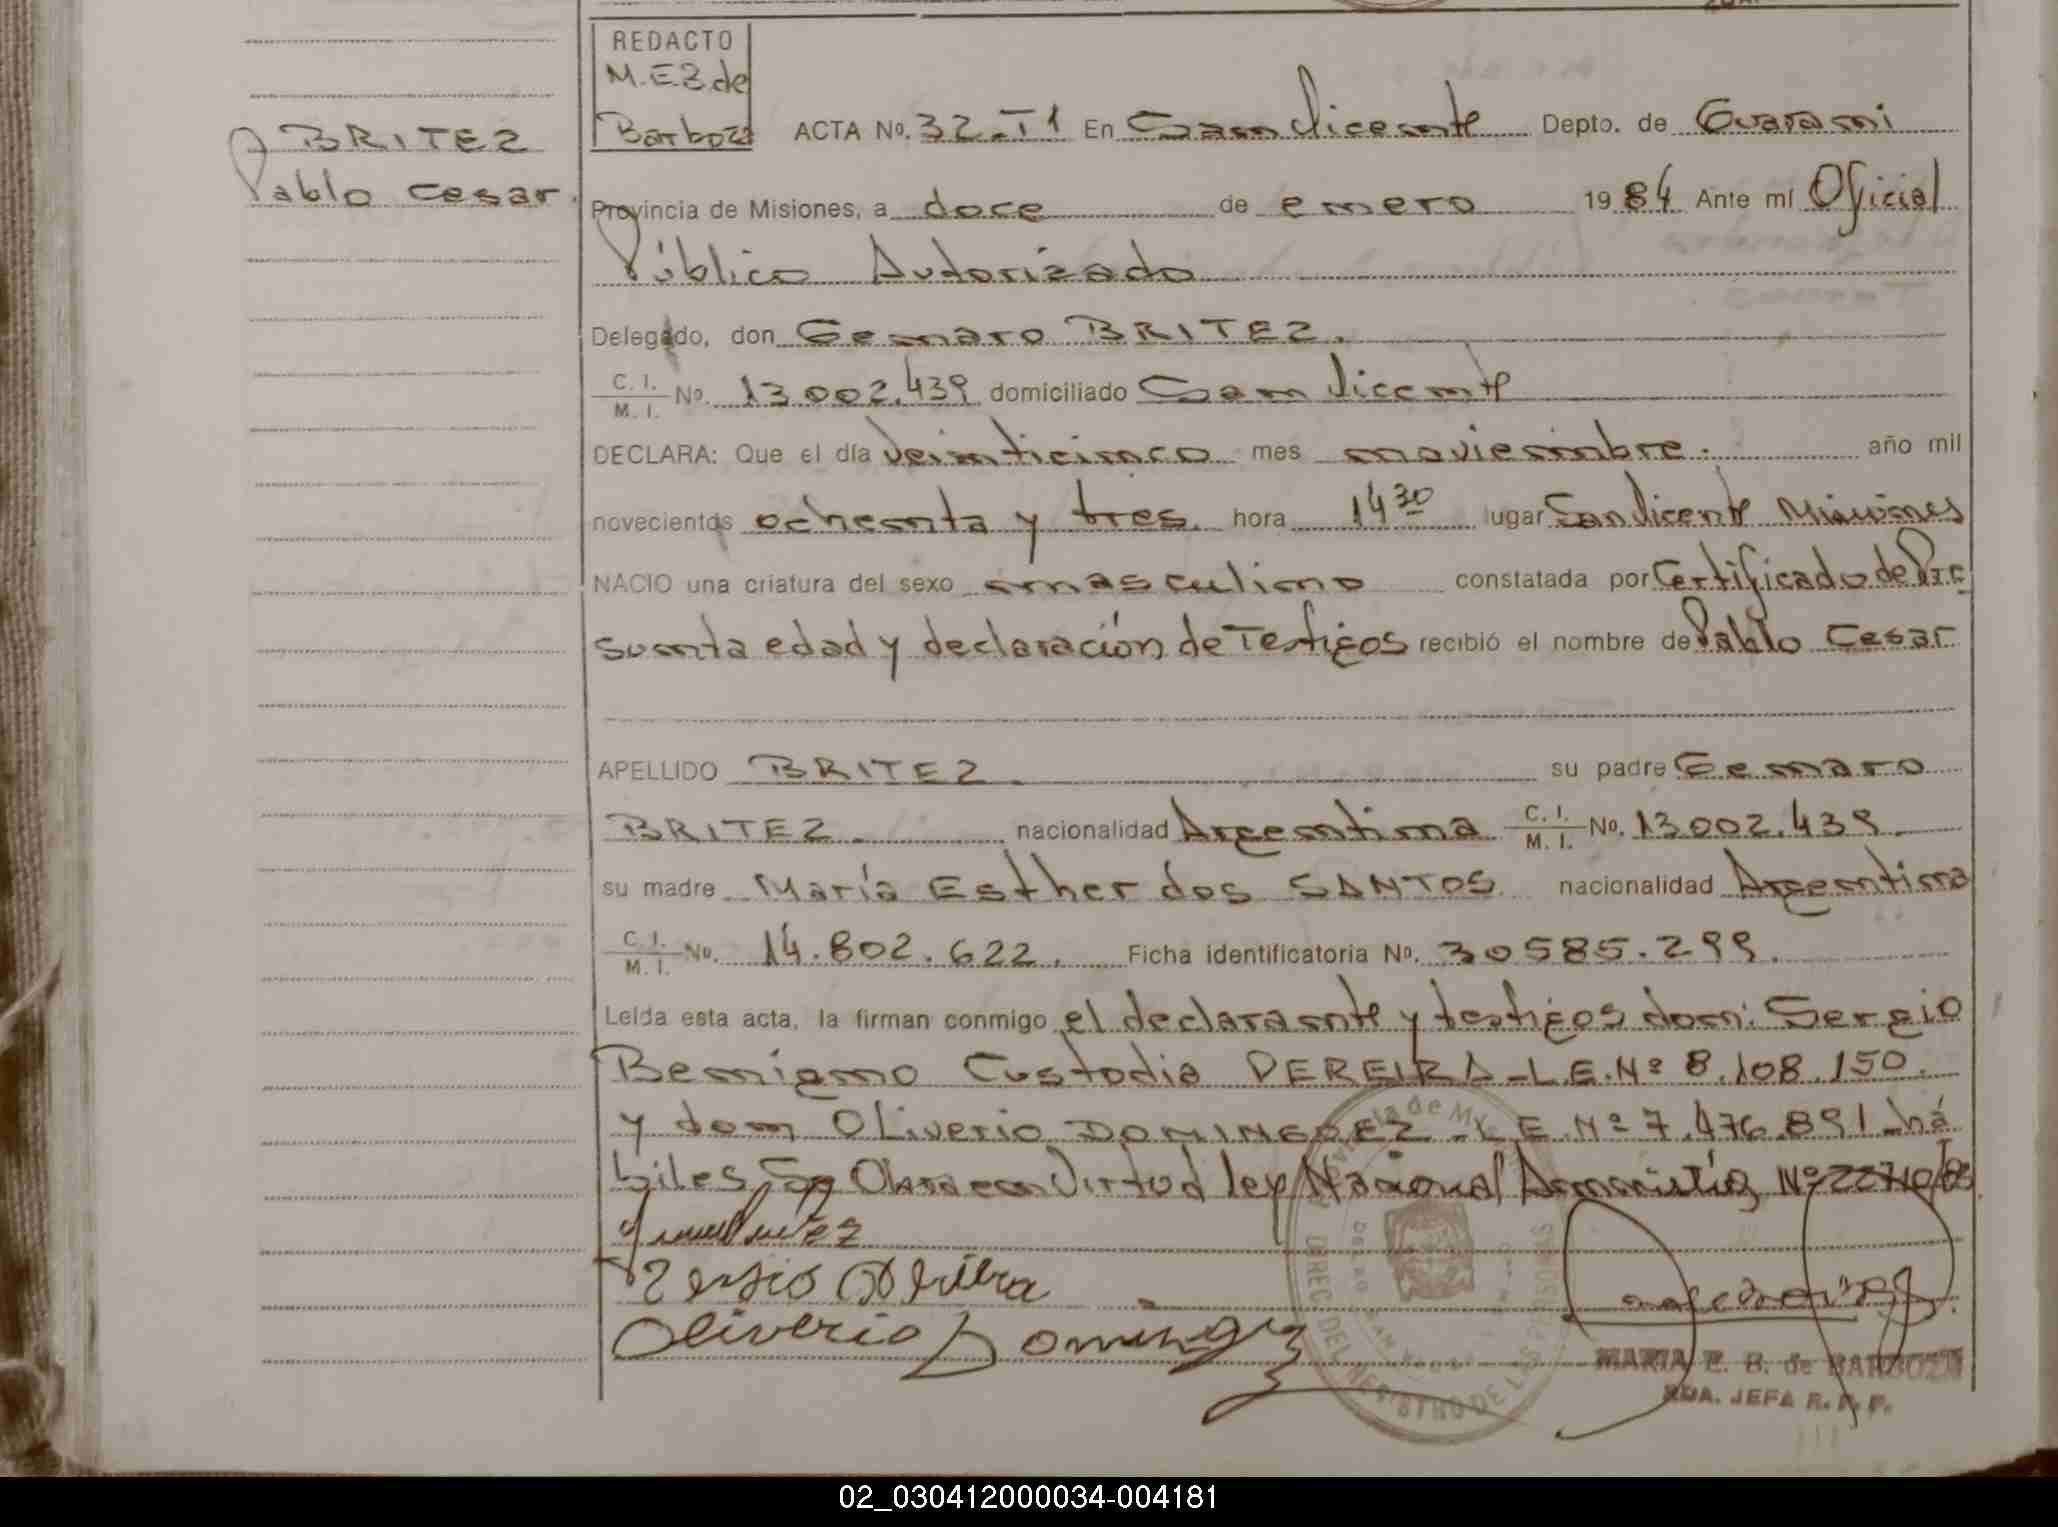 REDACTO
M.E.B de
Barboza
BRITEZ
Pablo Cesar
ACTA No. 32-T1 En San Vicente Depto. de Guarani
Provincia de Misiones, a doce de enero 1984 Ante mí Oficial
Público Autorizado
Delegado, don Genaro BRITEZ.
C. I. M. I. No. 13.002.439 domiciliado San Vicente
DECLARA: Que el día veinticinco mes noviembre. año mil
novecientos ochenta y tres hora 14 30 lugar San Vicente Misiones
NACIO una criatura del sexo masculino constatada por Certificado de Pre
sunta edad y declaración de Testigos recibió el nombre de Pablo Cesar
APELLIDO BRITEZ su padre Genaro
BRITEZ. nacionalidad Argentina C. I. M. I. No. 13.002.439.
su madre María Esther dos SANTOS nacionalidad Argentina
C. I. M. I. No. 14.802.622. Ficha identificatoria No. 30585.299.
Leída esta acta, la firman conmigo el declarante y testigos don: Sergio
Benigno Custodia PEREIRA - L.E. Nº 8.108.150.
y don Oliverio DOMINGUEZ - L.E. Nº 7.476.891 - há
biles Se Obra en Virtud ley Nacional Amnistía Nº 22710/83
Sergio Pereira
Oliverio Dominguez
DIREC DEL REGISTRO DE LAS PERSONAS
MARIA E. B. de BARBOZA
RDA. JEFA R. P. P.
02_030412000034-004181